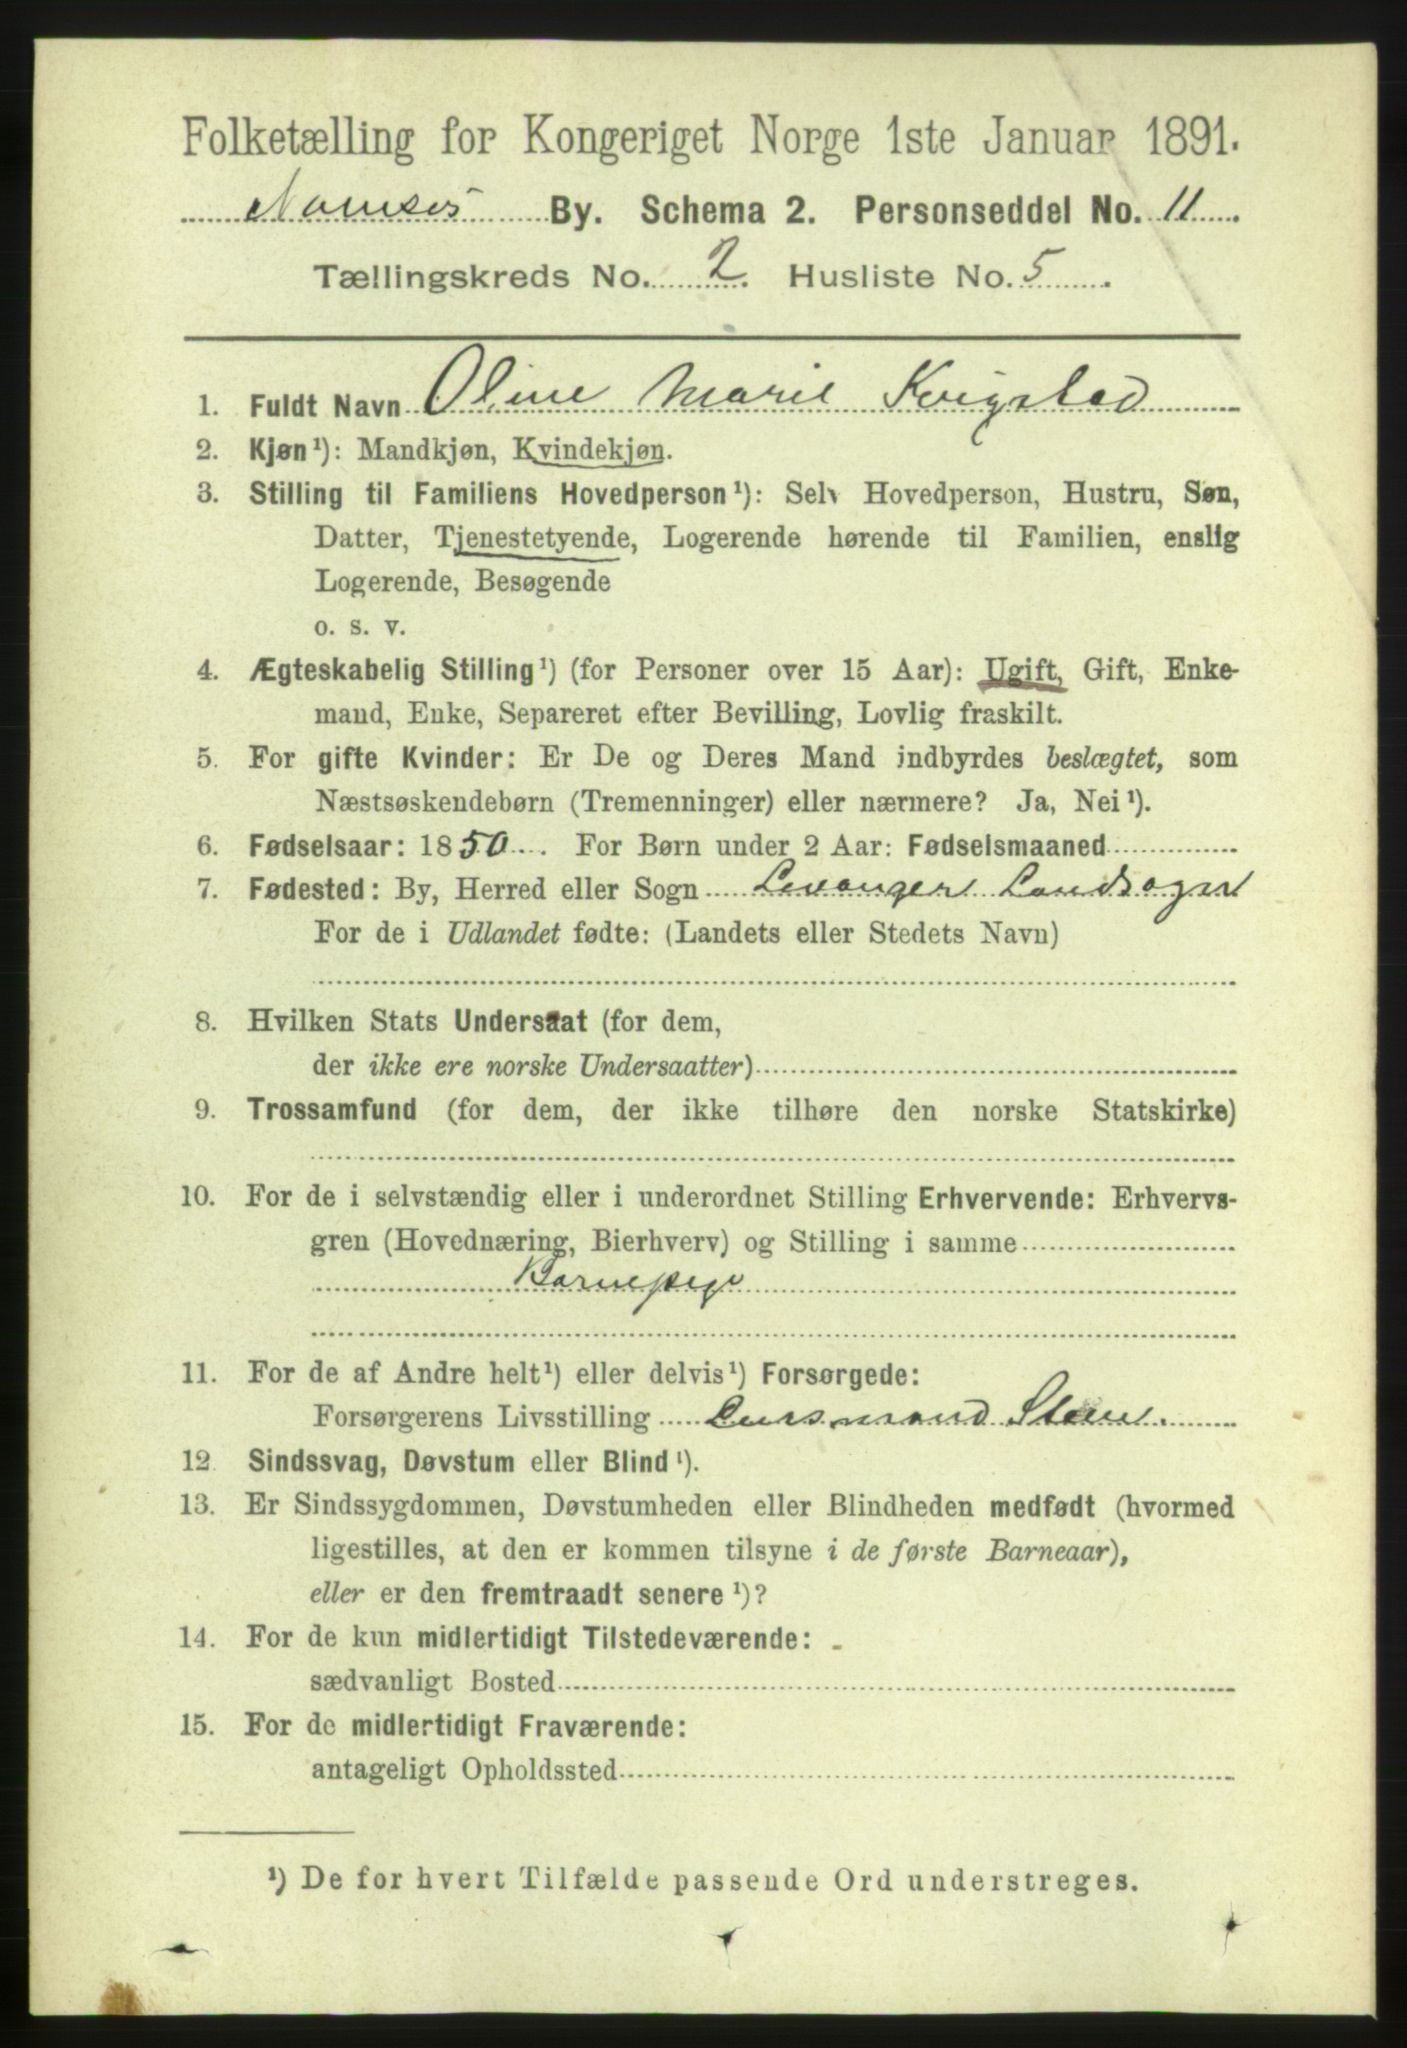 Folketælling for Kongeriget Norge 1ste Januar 1891.
Namsos By. Schema 2. Personseddel No. 11
Tællingskreds No. 2. Husliste No. 5.
1. Fuldt Navn Oline Marie Kvigstad
2. Kjøn¹): Mandkjøn, Kvindekjøn.
3. Stilling til Familiens Hovedperson¹): Selv Hovedperson, Hustru, Søn,
Datter, Tjenestetyende, Logerende hørende til Familien, enslig
Logerende, Besøgende
o. s. v.
4. Ægteskabelig Stilling¹) (for Personer over 15 Aar): Ugift, Gift, Enke-
mand, Enke, Separeret efter Bevilling, Lovlig fraskilt.
5. For gifte Kvinder: Er De og Deres Mand indbyrdes beslægtet, som
Næstsøskendebørn (Tremenninger) eller nærmere? Ja, Nei¹).
6. Fødselsaar: 1850. For Børn under 2 Aar: Fødselsmaaned
7. Fødested: By, Herred eller Sogn Levanger Landsogn
For de i Udlandet fødte: (Landets eller Stedets Navn)
8. Hvilken Stats Undersaat (for dem,
der ikke ere norske Undersaatter)
9. Trossamfund (for dem, der ikke tilhøre den norske Statskirke)
10. For de i selvstændig eller i underordnet Stilling Erhvervende: Erhvervs-
gren (Hovednæring, Bierhverv) og Stilling i samme
Barnepige
11. For de af Andre helt¹) eller delvis¹) Forsørgede:
Forsørgerens Livsstilling Lensmand
12. Sindssvag, Døvstum eller Blind¹).
13. Er Sindssygdommen, Døvstumheden eller Blindheden medfødt (hvormed
ligestilles, at den er kommen tilsyne i de første Barneaar),
eller er den fremtraadt senere¹)?
14. For de kun midlertidigt Tilstedeværende:
sædvanligt Bosted
15. For de midlertidigt Fraværende:
antageligt Opholdssted
¹) De for hvert Tilfælde passende Ord understreges.